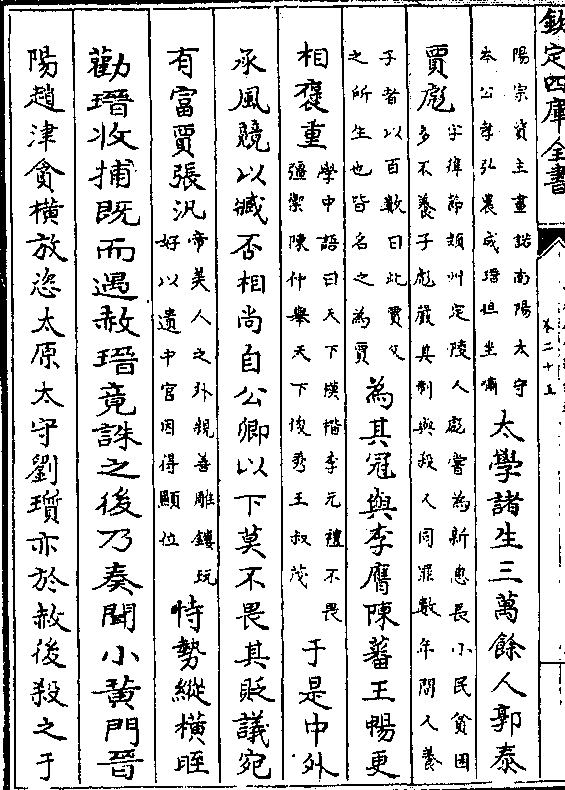 欽定四庫全書
卷二十五
陽宗資主畫諾南陽太守
岑公孝弘農成瑨但坐嘯
太學諸生三萬餘人郭泰
賈彪
字偉節頴州定陵人彪嘗為新息長小民貧困
多不養子彪嚴其制與殺人同罪數年間人養
子者以百數曰此賈父
之所生也皆名之為賈
為其冠與李膺陳蕃王暢更
相褒重
學中語曰天下模楷李元禮不畏
彊禦陳仲舉天下俊秀王叔茂
于是中外
承風競以臧否相尚自公卿以下莫不畏其貶議宛
有富賈張汎
帝美人之外親善雕鏤玩
好以遺中官因得顯位
恃勢縱橫晊
勸瑨收捕既而遇赦瑨竟誅之後乃奏聞小黃門晉
陽趙津貪橫放恣太原太守劉瓆亦於赦後殺之于